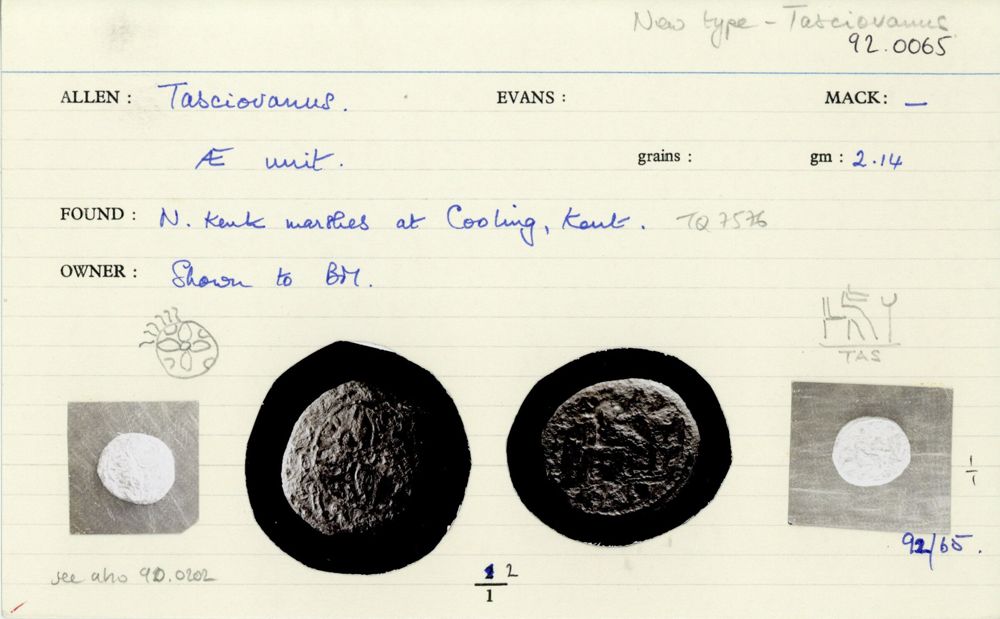 New type - Tasciovanus
92.0065
ALLEN : Tasciovanus. EVANS : MACK: —
Æ unit. grains : gm : 2.14
FOUND : N. Kent marshes at Cooling, Kent. TQ 7576
OWNER : Shown to BM.
TAS
1/1
92/65.
see also 90.0202
2
1